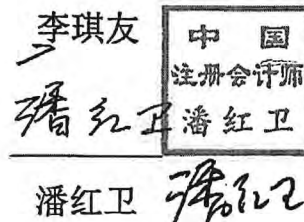 李琪友
中国
注册会计师
潘红卫
潘红卫
潘红卫 潘红卫